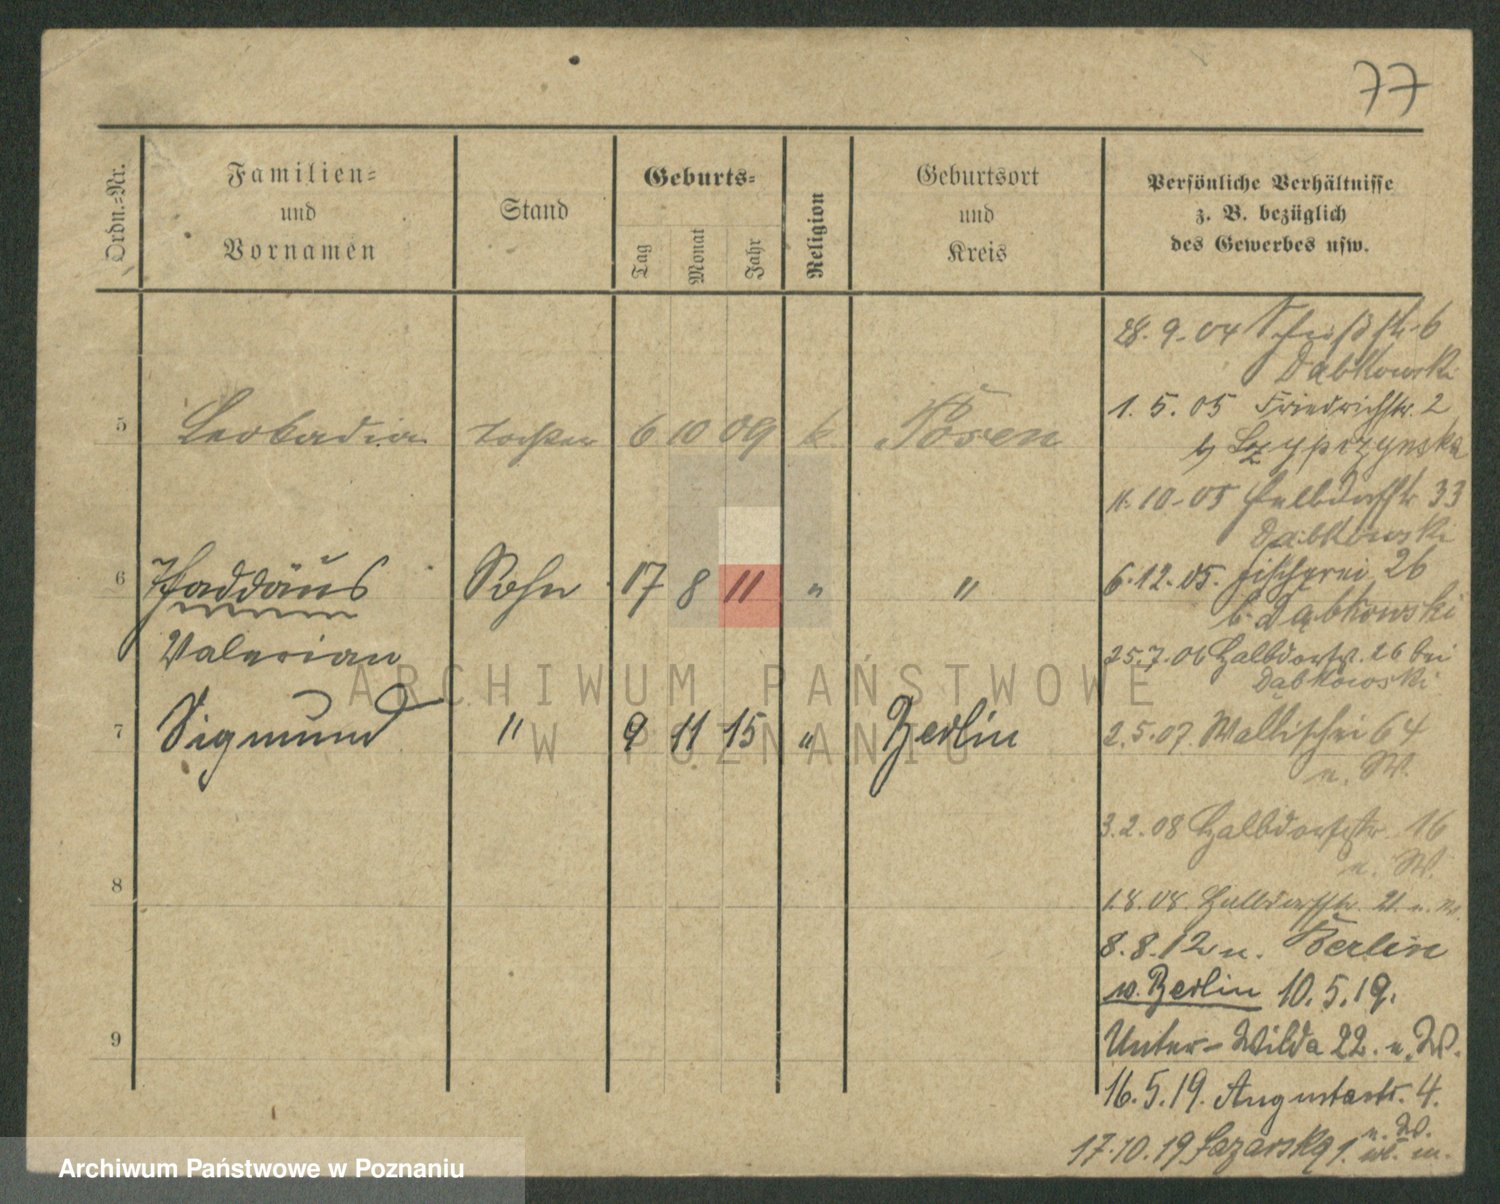 77
Ordn.-Nr.
Familien-
und
Vornamen
Stand
Geburts-
Tag
Monat
Jahr
Religion
Geburtsort
und
Kreis
Persönliche Verhältnisse
z. B. bezüglich
des Gewerbes usw.
5 Leokadia Tochter 6 10 09 k. Posen
6 Thaddäus Sohn 17 8 11 " "
Valerian
7 Sigmund " 9 11 15 " Berlin
8
9
28.9.04 6
Dąbkowski
1.5.05 Friedrichstr. 2
11.10.05 Halbdorfstr. 33
Dąbkowski
6.12.05. Fischerei 26
b. Dąbkowski
25.7.06 Halbdorfstr. 26 bei
Dąbkowski
2.5.07. Wallischei 64
u. W.
3.2.08 Halbdorfstr. 16
u. W.
1.8.08. Halbdorfstr. 21. u. W.
8.8.12 n. Berlin
v. Berlin 10.5.19.
Unter-Wilda 22. u. W.
16.5.19. Augustastr. 4.
u. W.
17.10.19 1.
ARCHIWUM PAŃSTWOWE
W POZNANIU
Archiwum Państwowe w Poznaniu